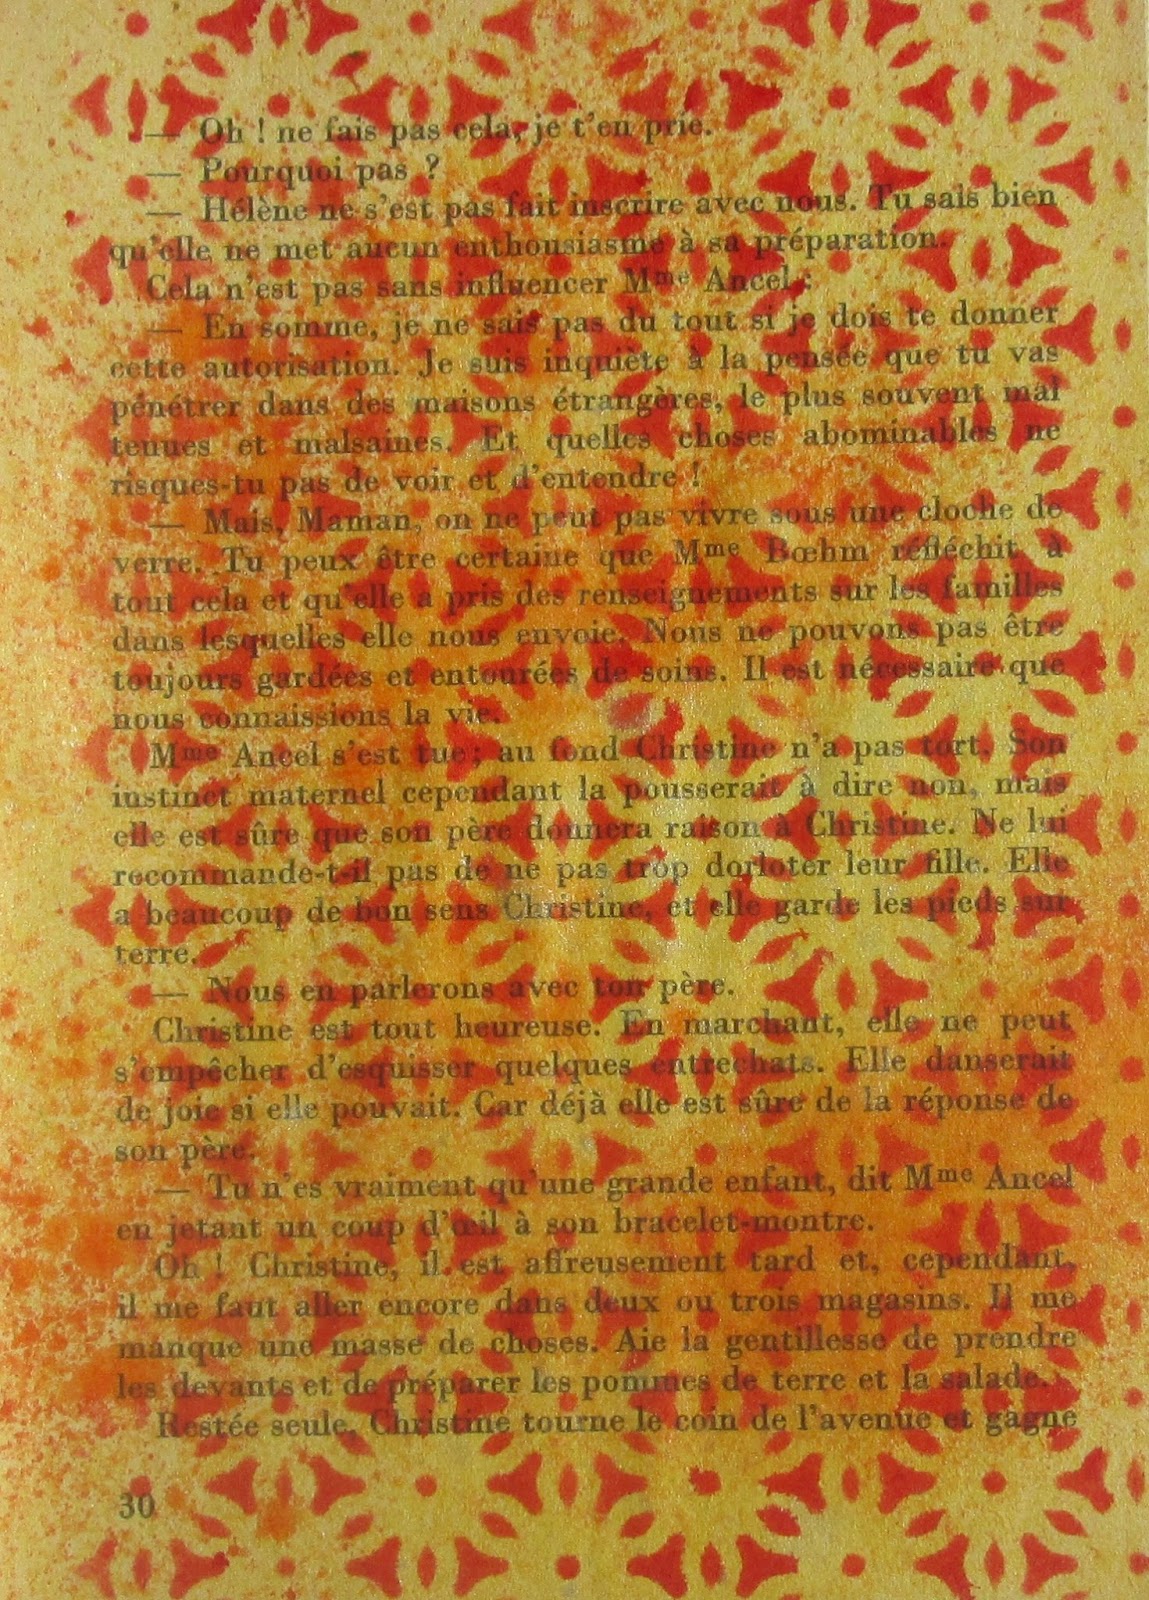 — Oh ! ne fais pas cela, je t'en prie.
— Pourquoi pas ?
— Hélène ne s'est pas fait inscrire avec nous. Tu sais bien
qu'elle ne met aucun enthousiasme à sa préparation.
Cela n'est pas sans influencer Mme Ancel :
— En somme, je ne sais pas du tout si je dois te donner
cette autorisation. Je suis inquiète à la pensée que tu vas
pénétrer dans des maisons étrangères, le plus souvent mal
tenues et malsaines. Et quelles choses abominables ne
risques-tu pas de voir et d'entendre !
— Mais, Maman, on ne peut pas vivre sous une cloche de
verre. Tu peux être certaine que Mme Bœhm réfléchit à
tout cela et qu'elle a pris des renseignements sur les familles
dans lesquelles elle nous envoie. Nous ne pouvons pas être
toujours gardées et entourées de soins. Il est nécessaire que
nous connaissions la vie.
Mme Ancel s'est tue ; au fond Christine n'a pas tort. Son
instinct maternel cependant la pousserait à dire non, mais
elle est sûre que son père donnera raison à Christine. Ne lui
recommande-t-il pas de ne pas trop dorloter leur fille. Elle
a beaucoup de bon sens Christine, et elle garde les pieds sur
terre.
— Nous en parlerons avec ton père.
Christine est tout heureuse. En marchant, elle ne peut
s'empêcher d'esquisser quelques entrechats. Elle danserait
de joie si elle pouvait. Car déjà elle est sûre de la réponse de
son père.
— Tu n'es vraiment qu'une grande enfant, dit Mme Ancel
en jetant un coup d'œil à son bracelet-montre.
Oh ! Christine, il est affreusement tard et, cependant,
il me faut aller encore dans deux ou trois magasins. Il me
manque une masse de choses. Aie la gentillesse de prendre
les devants et de préparer les pommes de terre et la salade.
Restée seule, Christine tourne le coin de l'avenue et gagne
30